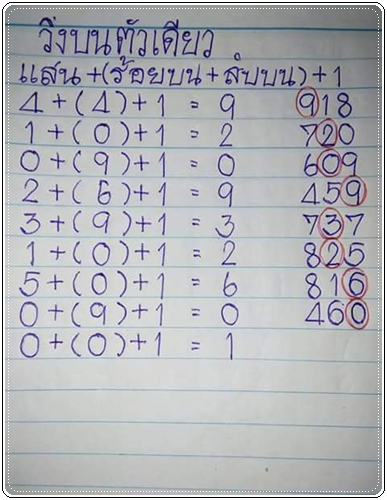 วิ่งบนตัวเดียว
แสน+(ร้อยบน+สิบบน)+1
4+(4)+1 = 9 918
1+(0)+1 = 2 720
0+(9)+1 = 0 609
2+(6)+1 = 9 459
3+(9)+1 = 3 737
1+(0)+1 = 2 825
5+(0)+1 = 6 816
0+(9)+1 = 0 460
0+(0)+1 = 1